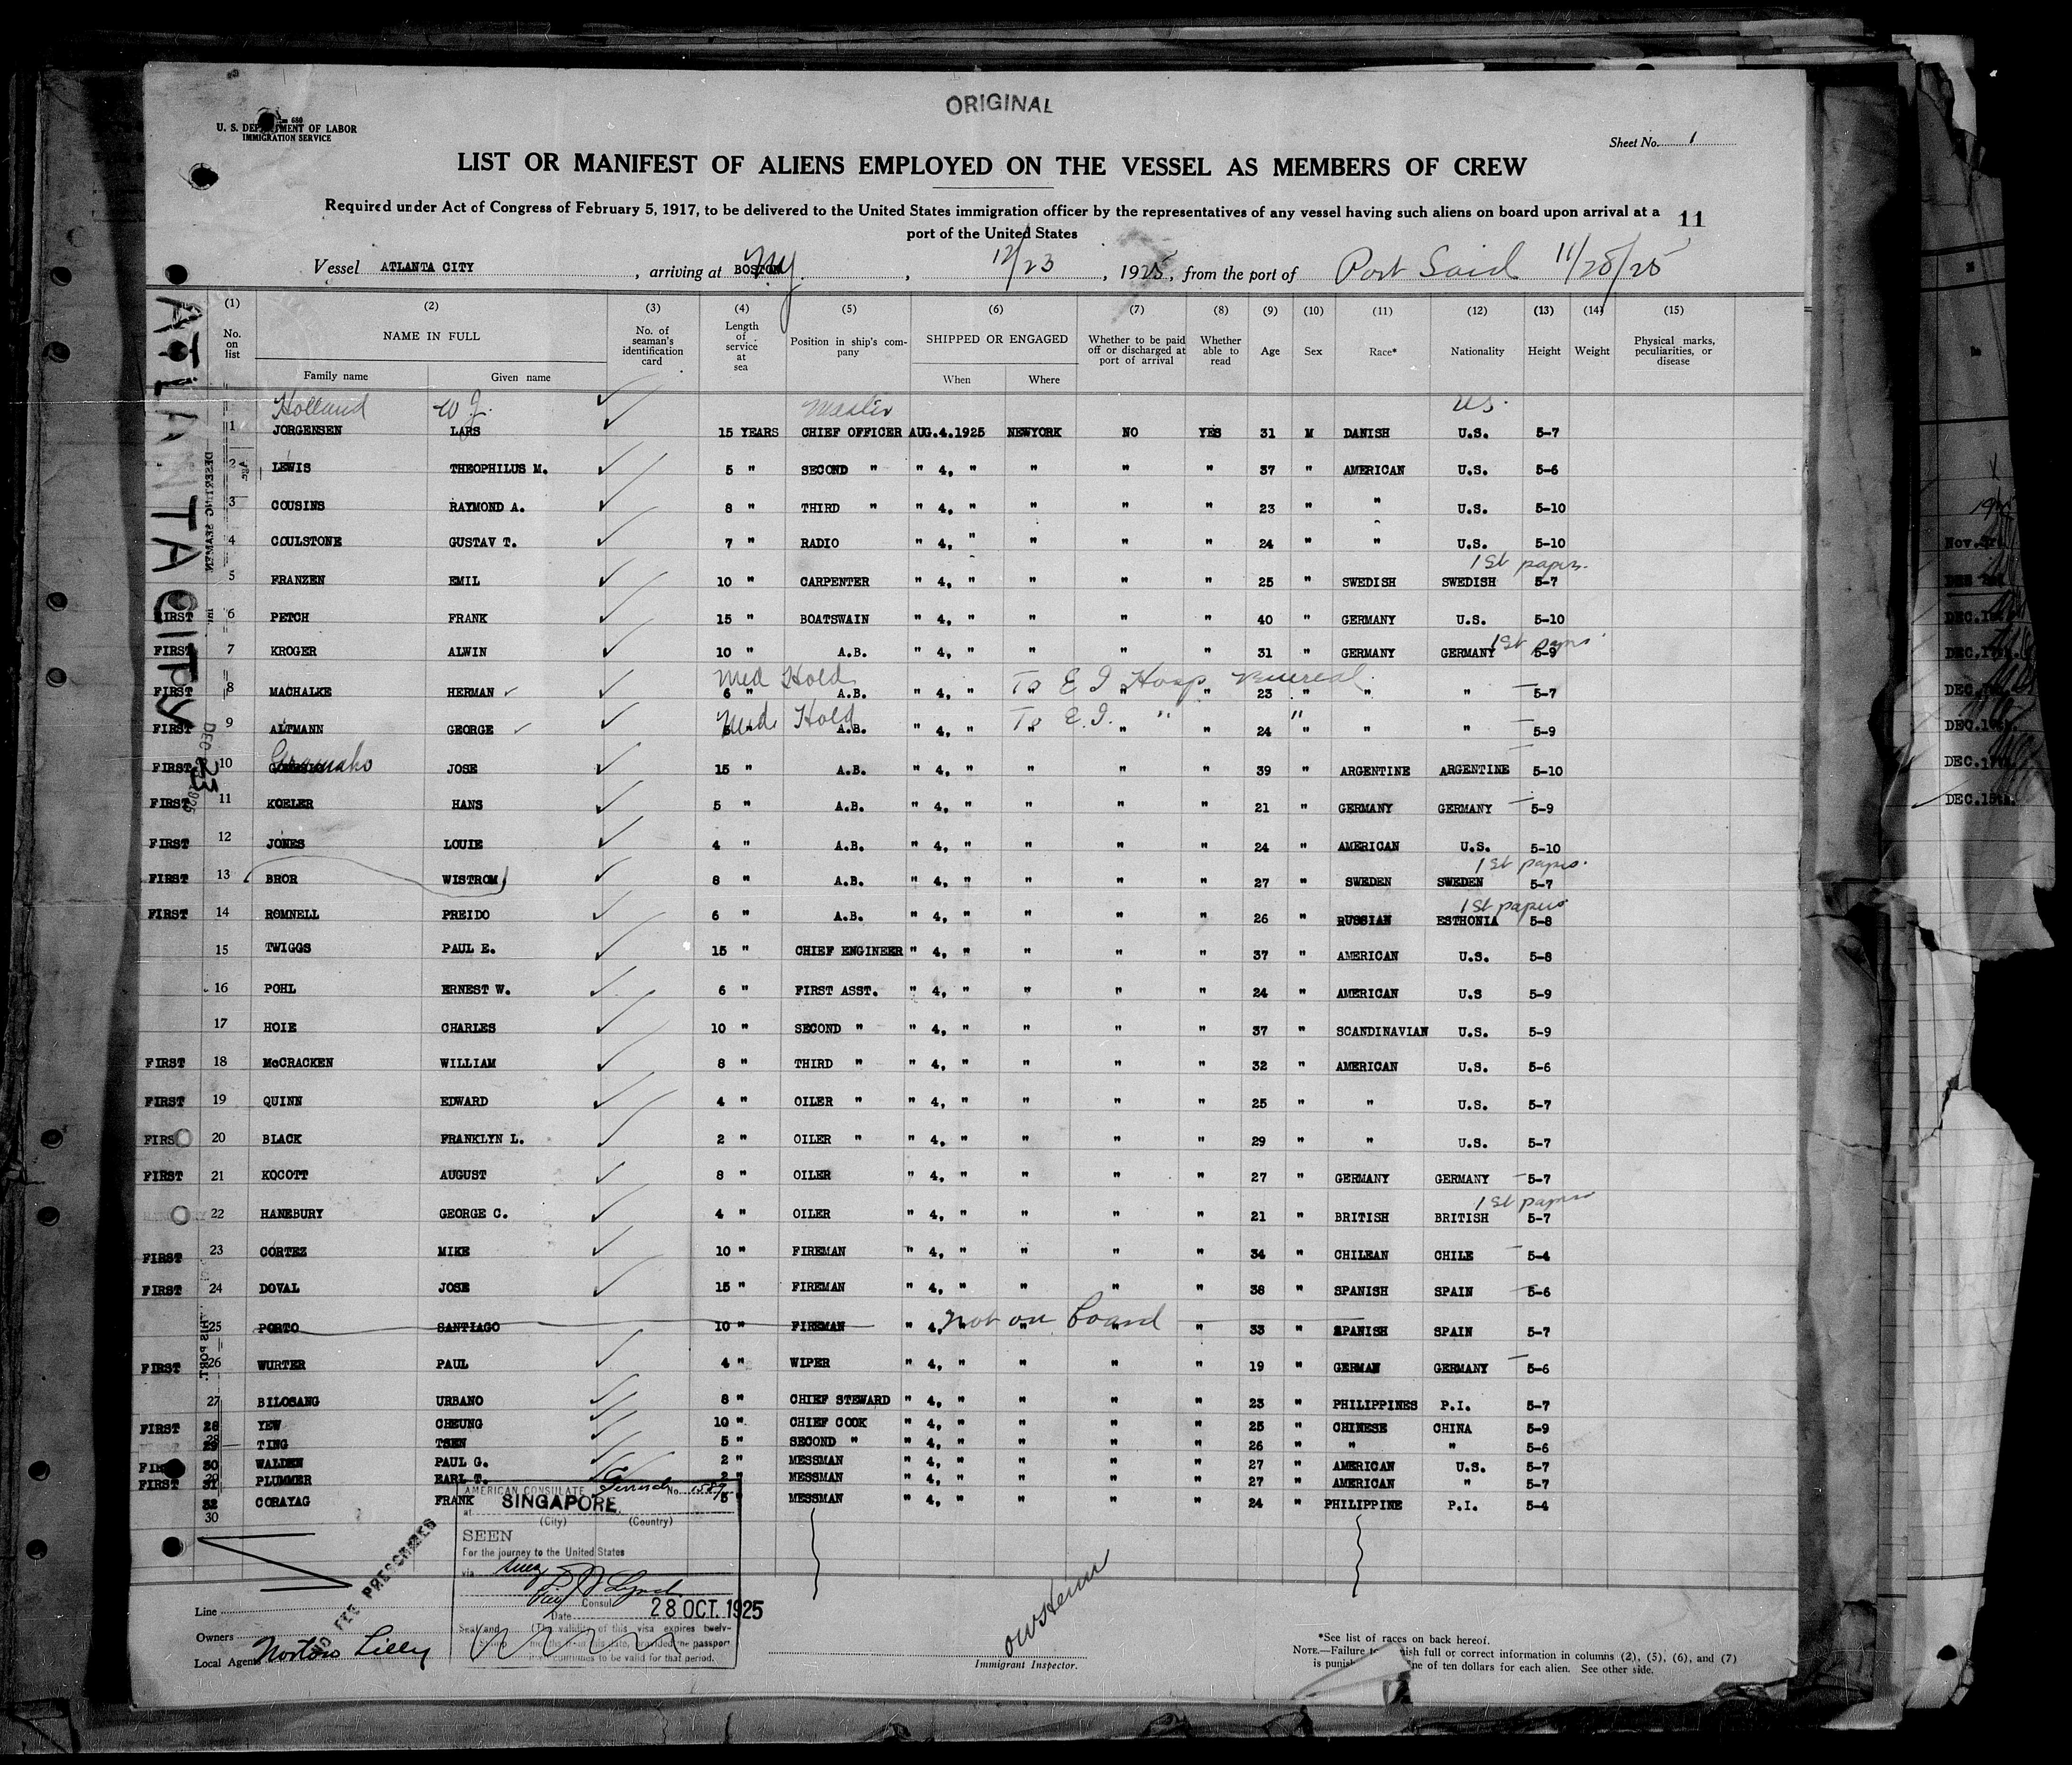 ORIGINAL
U. S. DEPARTMENT OF LABOR
IMMIGRATION SERVICE
Sheet No. 1
LIST OR MANIFEST OF ALIENS EMPLOYED ON THE VESSEL AS MEMBERS OF CREW
Required under Act of Congress of February 5, 1917, to be delivered to the United States immigration officer by the representatives of any vessel having such aliens on board upon arrival at a
port of the United States
11
Vessel ATLANTA CITY, arriving at BOSTON NY, 12/23, 1925, from the port of Port Said 11/28/25
(1) (2) (3) (4) (5) (6) (7) (8) (9) (10) (11) (12) (13) (14) (15)
No. on list NAME IN FULL No. of seaman's identification card Length of service at sea Position in ship's company SHIPPED OR ENGAGED Whether to be paid off or discharged at port of arrival Whether able to read Age Sex Race* Nationality Height Weight Physical marks, peculiarities, or disease
Family name Given name When Where
Holland W J. Master U.S.
1 JORGENSEN LARS 15 YEARS CHIEF OFFICER AUG.4.1925 NEWYORK NO YES 31 M DANISH U.S. 5-7
2 LEWIS THEOPHILUS M. 5 " SECOND " " 4, " " " " 37 " AMERICAN U.S. 5-6
3 COUSINS RAYMOND A. 8 " THIRD " " 4, " " " " 23 " " U.S. 5-10
4 COULSTONE GUSTAV T. 7 " RADIO " 4, " " " " 24 " " U.S. 5-10
1st papers.
5 FRANZEN EMIL 10 " CARPENTER " 4, " " " " 25 " SWEDISH SWEDISH 5-7
FIRST 6 PETCH FRANK 15 " BOATSWAIN " 4, " " " " 40 " GERMANY U.S. 5-10
FIRST 7 KROGER ALWIN 10 " A.B. " 4, " " " " 31 " GERMANY GERMANY 1st papers 5-9
Med Hold To E I Hosp venereal
FIRST 8 MACHALKE HERMAN 6 " A.B. " 4, " " " " 23 " " " 5-7
Med Hold To E.I. " "
FIRST 9 ALTMANN GEORGE A.B. " 4, " " " " 24 " " " 5-9
FIRST 10 JOSE 15 " A.B. " 4, " " " " 39 " ARGENTINE ARGENTINE 5-10
FIRST 11 KOELER HANS 5 " A.B. " 4, " " " " 21 " GERMANY GERMANY 5-9
FIRST 12 JONES LOUIE 4 " A.B. " 4, " " " " 24 " AMERICAN U.S. 5-10
1st papers.
FIRST 13 BROR WISTROM 8 " A.B. " 4, " " " " 27 " SWEDEN SWEDEN 5-7
1st papers
FIRST 14 ROMNELL PREIDO 6 " A.B. " 4, " " " " 26 " RUSSIAN ESTHONIA 5-8
15 TWIGGS PAUL E. 15 " CHIEF ENGINEER " 4, " " " " 37 " AMERICAN U.S. 5-8
16 POHL ERNEST W. 6 " FIRST ASST. " 4, " " " " 24 " AMERICAN U.S 5-9
17 HOIE CHARLES 10 " SECOND " " 4, " " " " 37 " SCANDINAVIAN U.S. 5-9
FIRST 18 McCRACKEN WILLIAM 8 " THIRD " " 4, " " " " 32 " AMERICAN U.S. 5-6
FIRST 19 QUINN EDWARD 4 " OILER " " 4, " " " " 25 " " U.S. 5-7
FIRST 20 BLACK FRANKLYN L. 2 " OILER " " 4, " " " " 29 " " U.S. 5-7
FIRST 21 KOCOTT AUGUST 8 " OILER " 4, " " " " 27 " GERMANY GERMANY 5-7
1st papers
22 HANEBURY GEORGE C. 4 " OILER " 4, " " " " 21 " BRITISH BRITISH 5-7
FIRST 23 CORTEZ MIKE 10 " FIREMAN " 4, " " " " 34 " CHILEAN CHILE 5-4
FIRST 24 DOVAL JOSE 15 " FIREMAN " 4, " " " " 38 " SPANISH SPAIN 5-6
25 PORTO SANTIAGO 10 " FIREMAN " 4, " not on board " " " 33 " SPANISH SPAIN 5-7
FIRST 26 WURTER PAUL 4 " WIPER " 4, " " " " 19 " GERMAN GERMANY 5-6
27 BILOSANG URBANO 8 " CHIEF STEWARD " 4, " " " " 23 " PHILIPPINES P.I. 5-7
FIRST 28 YEW CHEUNG 10 " CHIEF COOK " 4, " " " " 25 " CHINESE CHINA 5-9
28 29 TING TSEN 5 " SECOND " " 4, " " " " 26 " " " 5-6
FIRST 30 WALDEN PAUL G. 2 " MESSMAN " 4, " " " " 27 " AMERICAN U.S. 5-7
FIRST 29 31 PLUMMER EARL T. 2 " MESSMAN " 4, " " " " 27 " AMERICAN " 5-7
32 CORAYAG FRANK 5 " MESSMAN " 4, " " " " 24 " PHILIPPINE P.I. 5-4
30
ATLANTA CITY
DEC 23 1925
AMERICAN CONSULATE General No. 1589
at SINGAPORE
(City) (Country)
SEEN
For the journey to the United States
via Suez
Consul
Date 28 OCT. 1925
Seal and Stamp (The validity of this visa expires twelve months from this date, provided the passport continues to be valid for that period.
NO FEE PRESCRIBED
Line
Owners
Local Agents Norton Lilly
Immigrant Inspector.
*See list of races on back hereof.
NOTE.—Failure to furnish full or correct information in columns (2), (5), (6), and (7)
is punishable by fine of ten dollars for each alien. See other side.